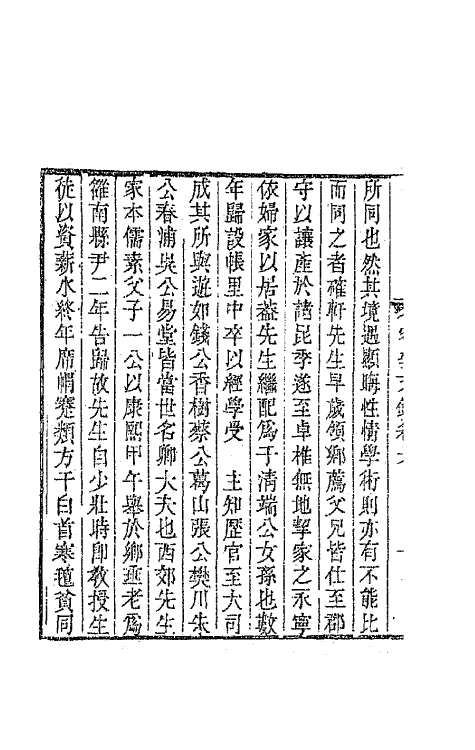 所同也然其境遇顯晦性情學術則亦有不能比
而同之者確軒先生早歲領鄉薦父兄皆仕至郡
守以讓產於諸昆季遂至卓椎無地挈家之永寧
依婦家以居葢先生繼配爲于淸端公女孫也數
年歸設帳里中卒以經學受　主知歷官至大司
成其所與遊如錢公香樹蔡公葛山張公樊川朱
公春浦吳公易堂皆當世名卿大夫也西郊先生
家本儒素父子一公以康熙甲午舉於鄉垂老爲
雒南縣尹二年告歸故先生自少壯時卽教授生
徒以資薪水終年席帽蹇類方干白首寒氊貧同